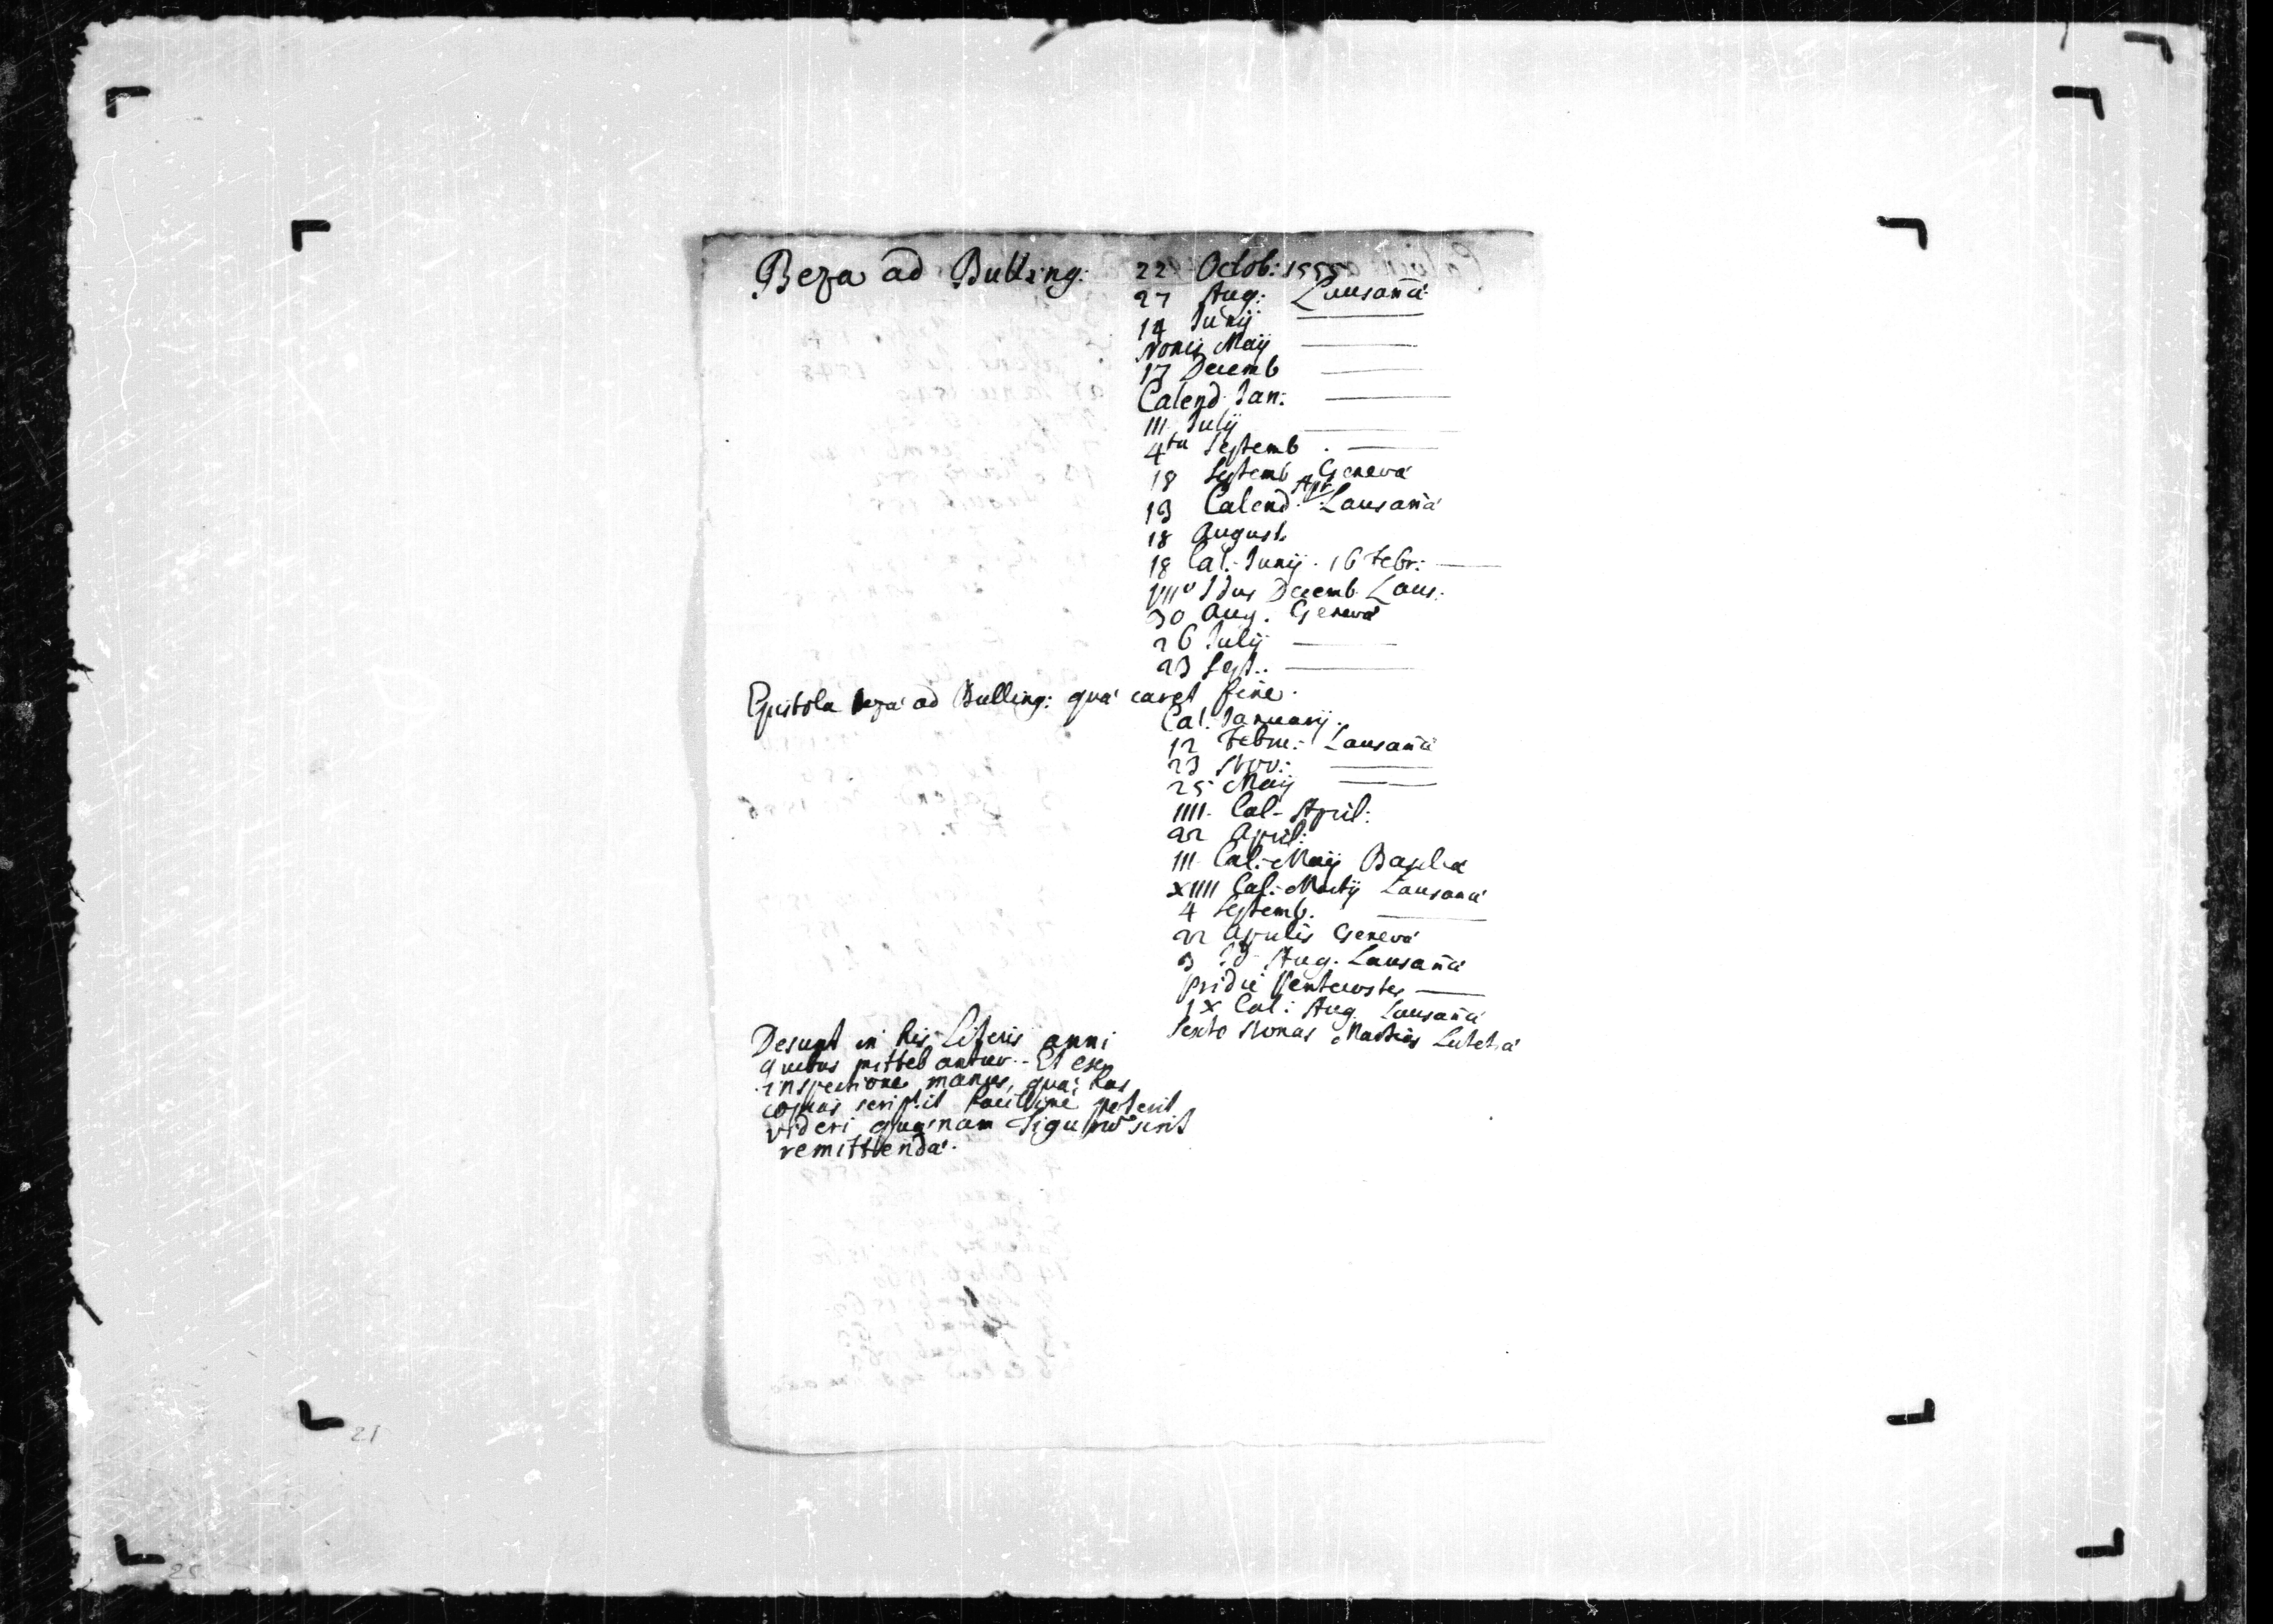 Beza ad Bulling: 22 Octob: 1555
27 Aug: Lausañá
14 Junij ———
Nonis Maij ———
17 Decemb ———
Calend Jan: ———
III July ———
4ta Septemb. ———
18 Septemb Genevá
13 Calend Apr: Lausañá
18 August.
18 Cal. Junij. 16 Febr: ———
VIIIº Idus Decemb. Laus:
30 Aug. Genevá
26 July ———
23 Sept. ———
Epistola Bezá ad Bulling: quá caret fine.
Cal. Januarij.
12 Febru: Lausañá
23 Nov: ———
25 Maij ———
IIII. Cal. April:
22 April:
III Cal. Maij Basileá
XIIII Cal. Martij Lausañá
4 Septemb. ———
22 Aprilis Genevá
3 Id Aug. Lausañá
pridie Pentecostes ———
IX Cal: Aug. Lausañá
Sexto Nonas Martias Lutetiá
Desunt in his Literis anni
quibus mittebantur. Et ex
inspectione manus, quá has
copias scripsit facillimé poterit
videri quænam Tiguro sint
remittendá.
21
25